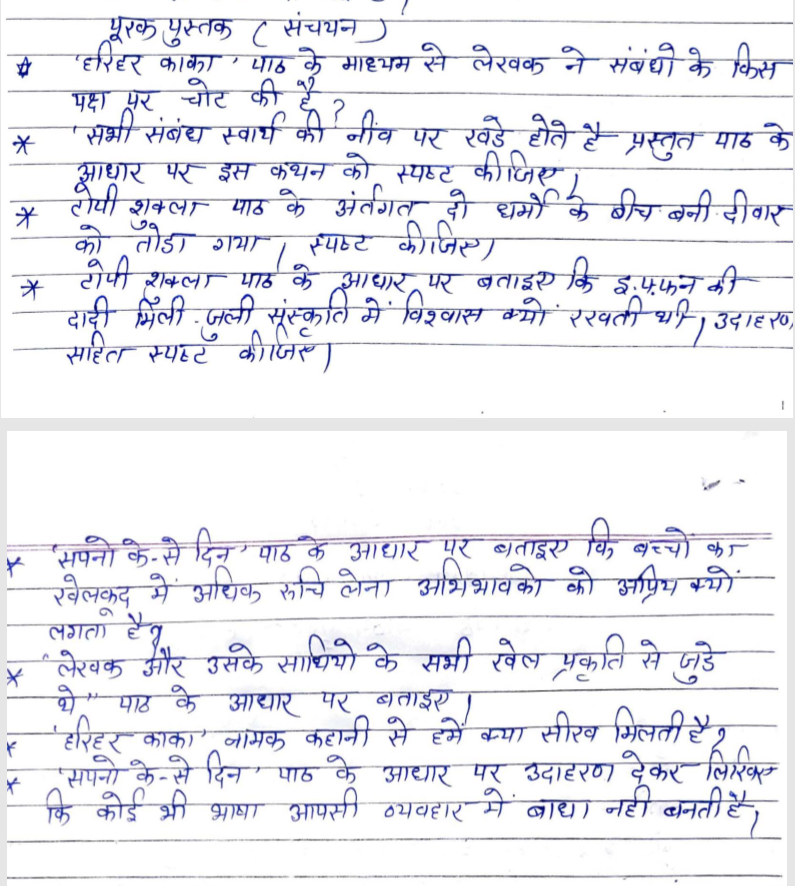 पूरक पुस्तक ( संचयन )
* 'हरिहर काका' पाठ के माध्यम से लेखक ने संबंधो के किस
पक्ष पर चोट की है ?
* 'सभी संबंध स्वार्थ की नींव पर खडे होते है प्रस्तुत पाठ के
आधार पर इस कथन को स्पष्ट कीजिए।
* टोपी शुक्ला पाठ के अंर्तगत दो धर्मो के बीच बनी दीवार
को तोडा गया। स्पष्ट कीजिए।
* टोपी शुक्ला पाठ के आधार पर बताइए कि इ.फ़्फ़न की
दादी मिली-जुली संस्कृति में विश्वास क्यों रखती थी, उदाहरण,
सहित स्पष्ट कीजिए।
* 'सपनो के-से दिन' पाठ के आधार पर बताइए कि बच्चों का
खेलकूद में अधिक रूचि लेना अभिभावको को अप्रिय क्यों
लगता है?
* "लेखक और उसके साथियो के सभी खेल प्रकृति से जुडे
थे" पाठ के आधार पर बताइए।
* 'हरिहर काका' नामक कहानी से हमें क्या सीख मिलती है?
* 'सपनो के-से दिन' पाठ के आधार पर उदाहरण देकर लिखिए
कि कोई भी भाषा आपसी व्यवहार में बाधा नही बनती है।